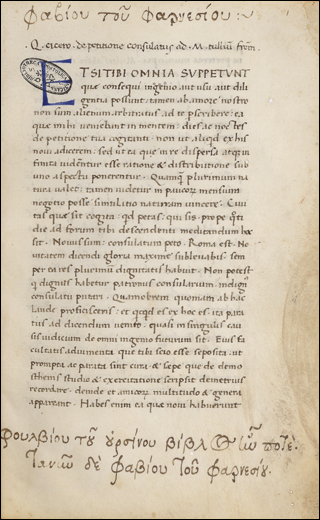 Φαβίου τοῦ Φαρνεσίου:
Q. cicero. de petitione consulatus ad. M. tullium frem.
ETSI TIBI OMNIA SUPPETUNT
quæ consequi ingenio, aut usu, aut dili
gentia possunt: tamen ab amore nostro
non sum alienum arbitratus ad te pscribere: ea
quæ mihi veniebant in mentem: dies ac noctes
de petitione tua cogitanti: non ut aliqd ex his
novi addiscerem: sed ut ea quæ in re dispersa atq in
finita viderentur esse ratione & distributione sub
uno aspectu ponerentur. Quamq plurimum na
tura valet: tamen videtur in paucor mensium
negotio posse simulatio naturam vincere. Civi
tas quæ sit cogita: qd petas: qui sis: prope qti
die ad forum tibi descendenti meditandum hoc
sit. Novus sum: consulatum peto: Roma est. No
vitatem dicendi gloria maxime sublevabis. sem
per ea res plurimum dignitatis habuit. Non potest
q dignus habetur patronus consularium: indign
consulatu putari. Quamobrem quoniam ab hac
laude proficisceris: et qcqd es ex hoc es: ita para
tus ad dicendum venito: quasi in singulis cau
sis iudicium de omni ingenio futurum sit. Eius fa
cultatis adiumenta quæ tibi scio esse seposita: ut
prompta ac parata sint cura: & sepe quæ de demo
sthenis studio & exercitatione scripsit demetrius
recordare. deinde et amicor multitudo & genera
appareant. Habes enim ea quæ novi habuerunt
Φουλβίου τοῦ ὐρσίνου βίβλ ὤν ποτέ.
δὲ Φαβίου τοῦ Φαρνεσίου.